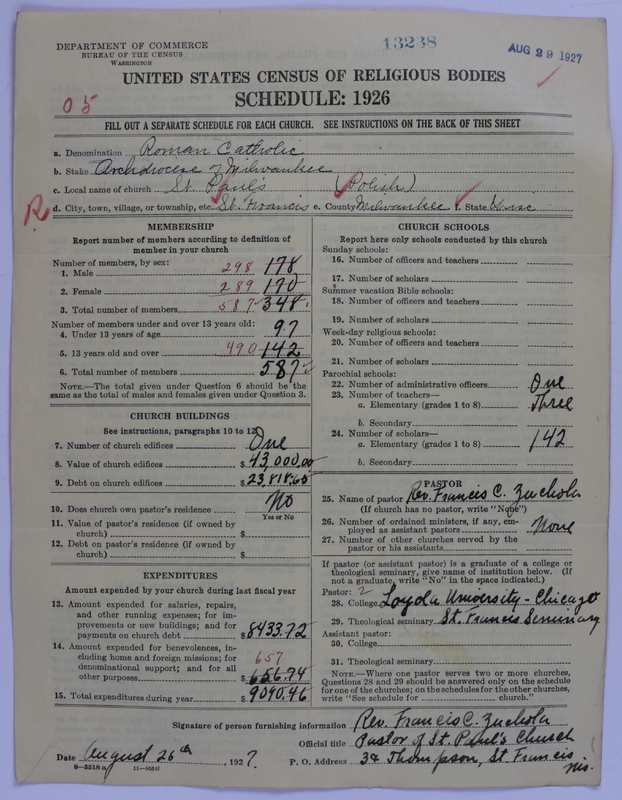 DEPARTMENT OF COMMERCE
BUREAU OF THE CENSUS
WASHINGTON
13238
AUG 29 1927
UNITED STATES CENSUS OF RELIGIOUS BODIES
SCHEDULE: 1926
05
FILL OUT A SEPARATE SCHEDULE FOR EACH CHURCH. SEE INSTRUCTIONS ON THE BACK OF THIS SHEET
a. Denomination Roman Catholic
b. Stake Archdiocese of Milwaukee
c. Local name of church St. Paul's (Polish)
R d. City, town, village, or township, etc. St. Francis e. County Milwaukee f. State
MEMBERSHIP
Report number of members according to definition of member in your church
Number of members, by sex:
1. Male 298 178
2. Female 289 170
3. Total number of members 587 348
Number of members under and over 13 years old:
4. Under 13 years of age 97
5. 13 years old and over 490 142
6. Total number of members 587
NOTE.—The total given under Question 6 should be the
same as the total of males and females given under Question 3.
CHURCH BUILDINGS
See instructions, paragraphs 10 to 12
7. Number of church edifices One
8. Value of church edifices $ 43,000.00
9. Debt on church edifices $ 23,818.65
10. Does church own pastor's residence No
Yes or No
11. Value of pastor's residence (if owned by
church) $
12. Debt on pastor's residence (if owned by
church) $
EXPENDITURES
Amount expended by your church during last fiscal year
13. Amount expended for salaries, repairs,
and other running expenses; for im-
provements or new buildings; and for
payments on church debt $ 8433.72
14. Amount expended for benevolences, in-
cluding home and foreign missions; for 657
denominational support; and for all
other purposes $ 656.74
15. Total expenditures during year $ 9090.46
CHURCH SCHOOLS
Report here only schools conducted by this church
Sunday schools:
16. Number of officers and teachers
17. Number of scholars
Summer vacation Bible schools:
18. Number of officers and teachers
19. Number of scholars
Week-day religious schools:
20. Number of officers and teachers
21. Number of scholars
Parochial schools:
22. Number of administrative officers One
23. Number of teachers—
a. Elementary (grades 1 to 8) Three
b. Secondary
24. Number of scholars—
a. Elementary (grades 1 to 8) 142
b. Secondary
PASTOR
25. Name of pastor Rev. Francis C. Zuchola
(If church has no pastor, write "None")
26. Number of ordained ministers, if any, em-
ployed as assistant pastors None
27. Number of other churches served by the
pastor or his assistants
If pastor (or assistant pastor) is a graduate of a college or
theological seminary, give name of institution below. (If
not a graduate, write "No" in the space indicated.)
Pastor: 2
28. College Loyola University - Chicago
29. Theological seminary St. Francis Seminary
Assistant pastor:
30. College
31. Theological seminary
NOTE.—Where one pastor serves two or more churches,
Questions 28 and 29 should be answered only on the schedule
for one of the churches; on the schedules for the other churches,
write "See schedule for church."
Signature of person furnishing information Rev. Francis C. Zuchola
Official title Pastor of St. Paul's Church
Date August 26th, 1927. P. O. Address 34 Thompson, St. Francis
Wis.
8-5518a 11-9051